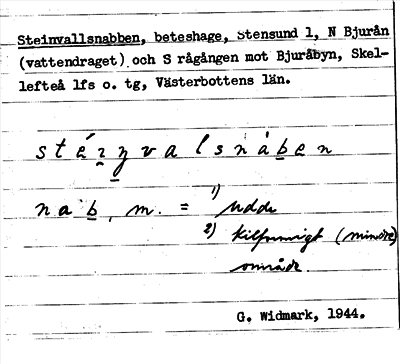 Steinvallsnabben, beteshage, Stensund 1, N Bjurån
(vattendraget) och S rågången mot Bjuråbyn, Skel-
lefteå lfs o. tg, Västerbottens län.
nab, m. = 1) udde
2) kilformigt (mindre)
område.
G. Widmark, 1944.